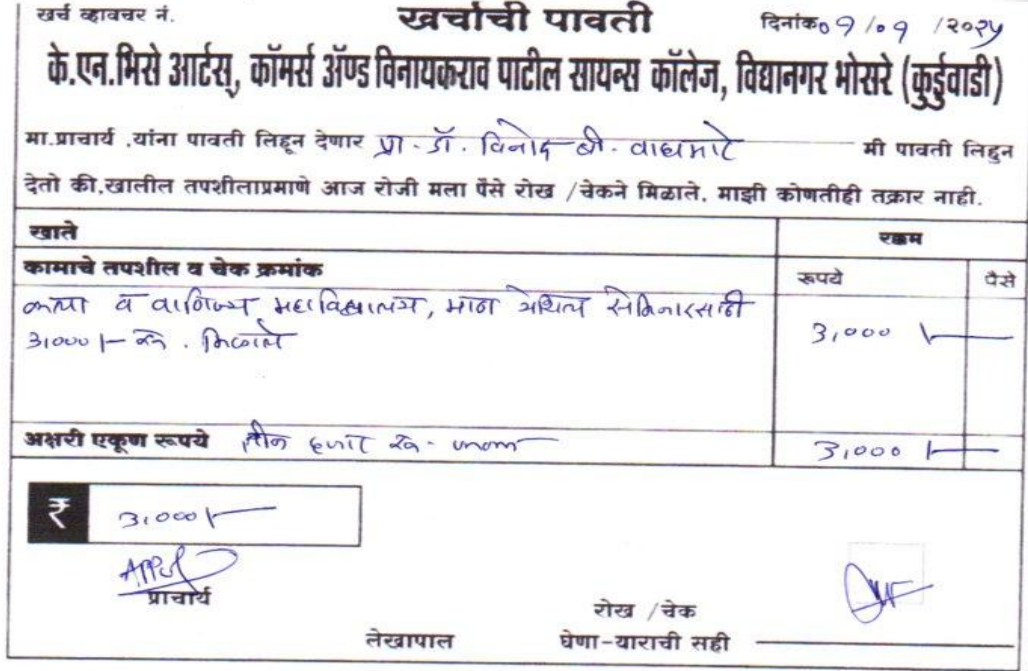 खर्च व्हावचर नं.
खर्चाची पावती
दिनांक ०१/०१ /२०२५
के.एन.भिसे आर्टस्, कॉमर्स ॲण्ड विनायकराव पाटील सायन्स कॉलेज, विद्यानगर भोसरे (कुर्डूवाडी)
मा.प्राचार्य .यांना पावती लिहून देणार प्रा. डॉ. विनोद बी. वाघमारे मी पावती लिहून
देतो की.खालील तपशीलाप्रमाणे आज रोजी मला पैसे रोख /चेकने मिळाले. माझी कोणतीही तक्रार नाही.
खाते रक्कम
कामाचे तपशील व चेक क्रमांक रूपये पैसे
कला व वाणिज्य महाविद्यालय, माढा येथिल सेमिनारसाठी
3,000/- रू. मिळाले 3,000/-
अक्षरी एकूण रूपये तीन हजार रू. 3,000/-
₹ 3,000/-
प्राचार्य
रोख /चेक
लेखापाल घेणा-याराची सही